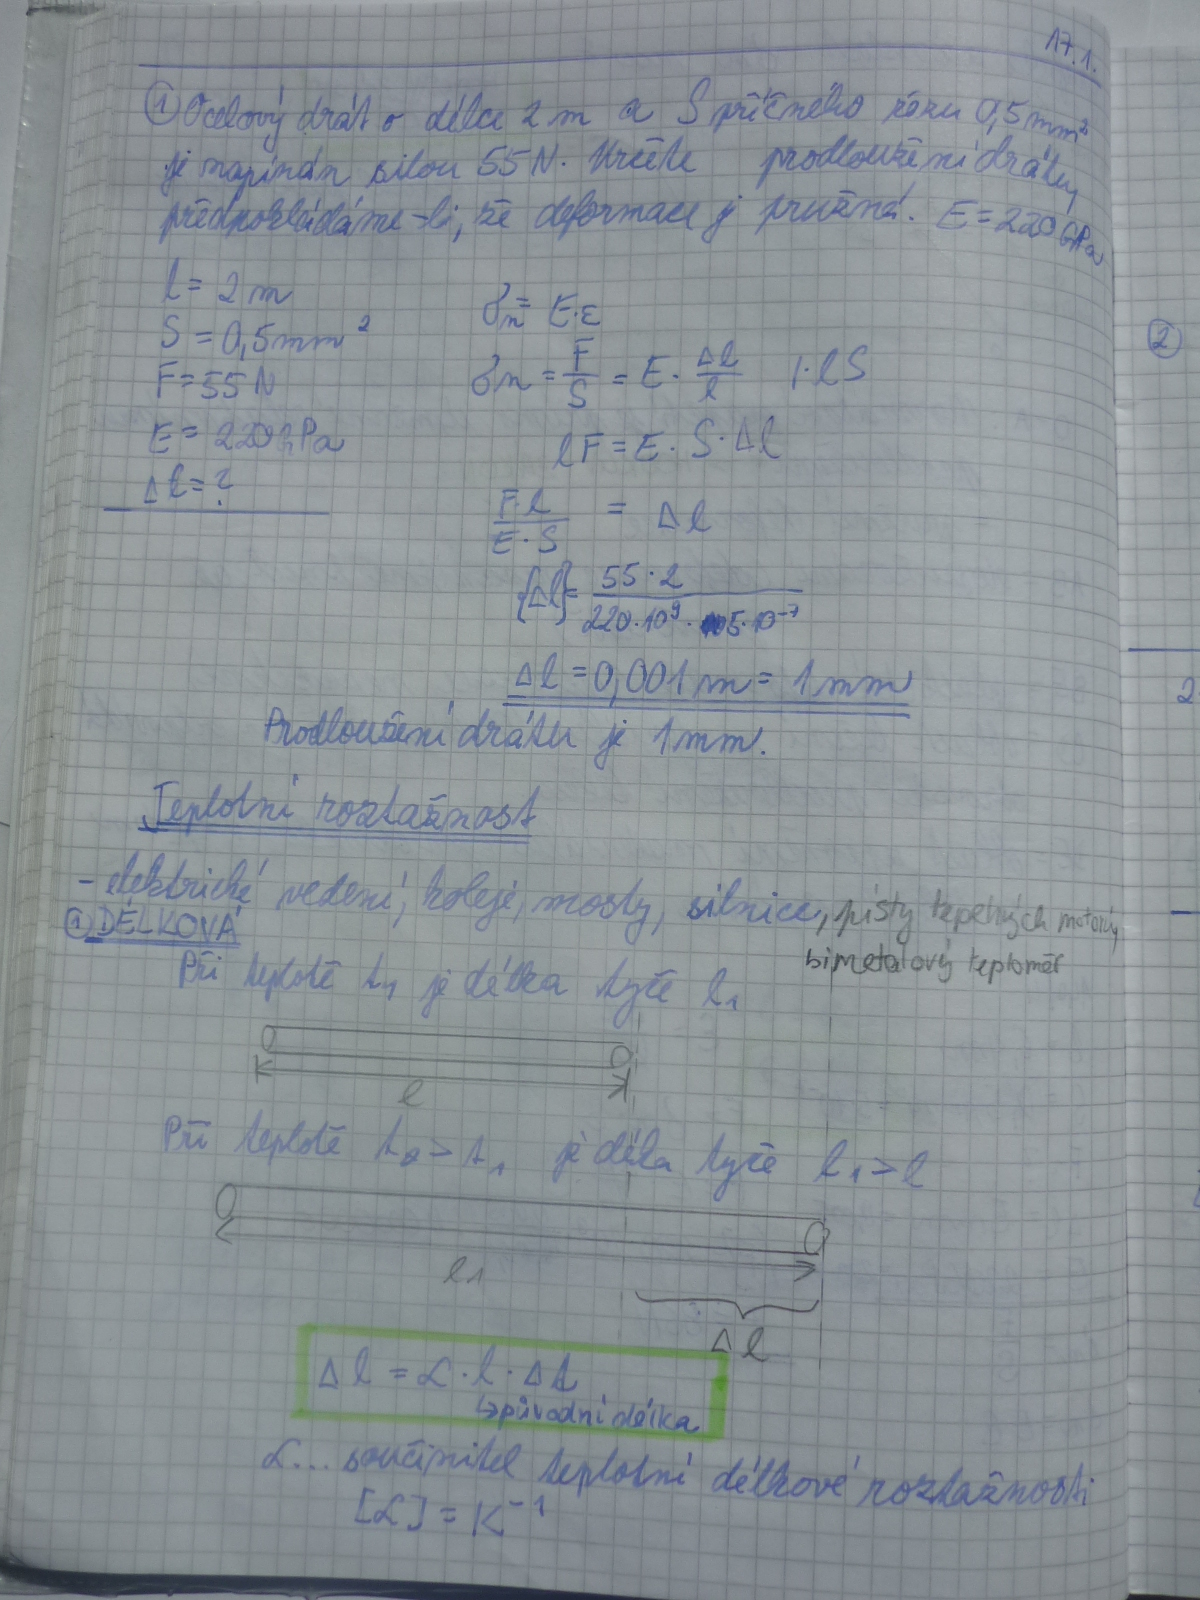 17.1.
① Ocelový drát o délce 2 m a S příčného řezu 0,5 mm²
je napínán silou 55 N. Určete prodloužení drátu,
předpokládáme-li, že deformace je pružná. E = 220 GPa
l = 2 m
S = 0,5 mm²
F = 55 N
E = 220 GPa
Δl = ?
σn = E·ε
σn = F/S = E · Δl/l /·lS
lF = E · S · Δl
F·l/E·S = Δl
{Δl} = 55·2/220·10⁹·5·10⁻⁷
Δl = 0,001 m = 1 mm
Prodloužení drátu je 1 mm.
Teplotní roztažnost
- elektrické vedení, koleje, mosty, silnice, písty tepelných motorů,
bimetalový teploměr
① DÉLKOVÁ
Při teplotě t₁ je délka tyče l₁
l
Při teplotě t₂ > t₁ je déla tyče l₁ > l
l₁
Δl
Δl = α · l · Δt
↳ původní délka
α... součinitel teplotní délkové roztažnosti
[α] = K⁻¹
②
2